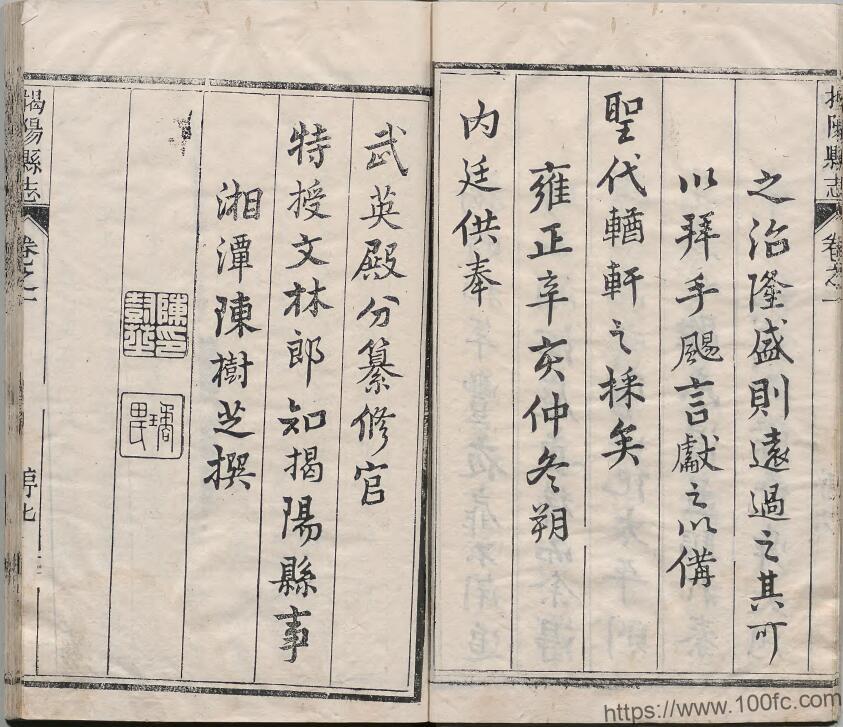 揭陽縣志
卷之一
之治隆盛則遠過之其可
以拜手颺言獻之以備
聖代輶軒之採矣
雍正辛亥仲冬朔
内廷供奉
武英殿分纂修官
特授文林郎知揭陽縣事
湘潭陳樹芝撰
揭陽縣志
卷之一
序七
https://www.100fc.com